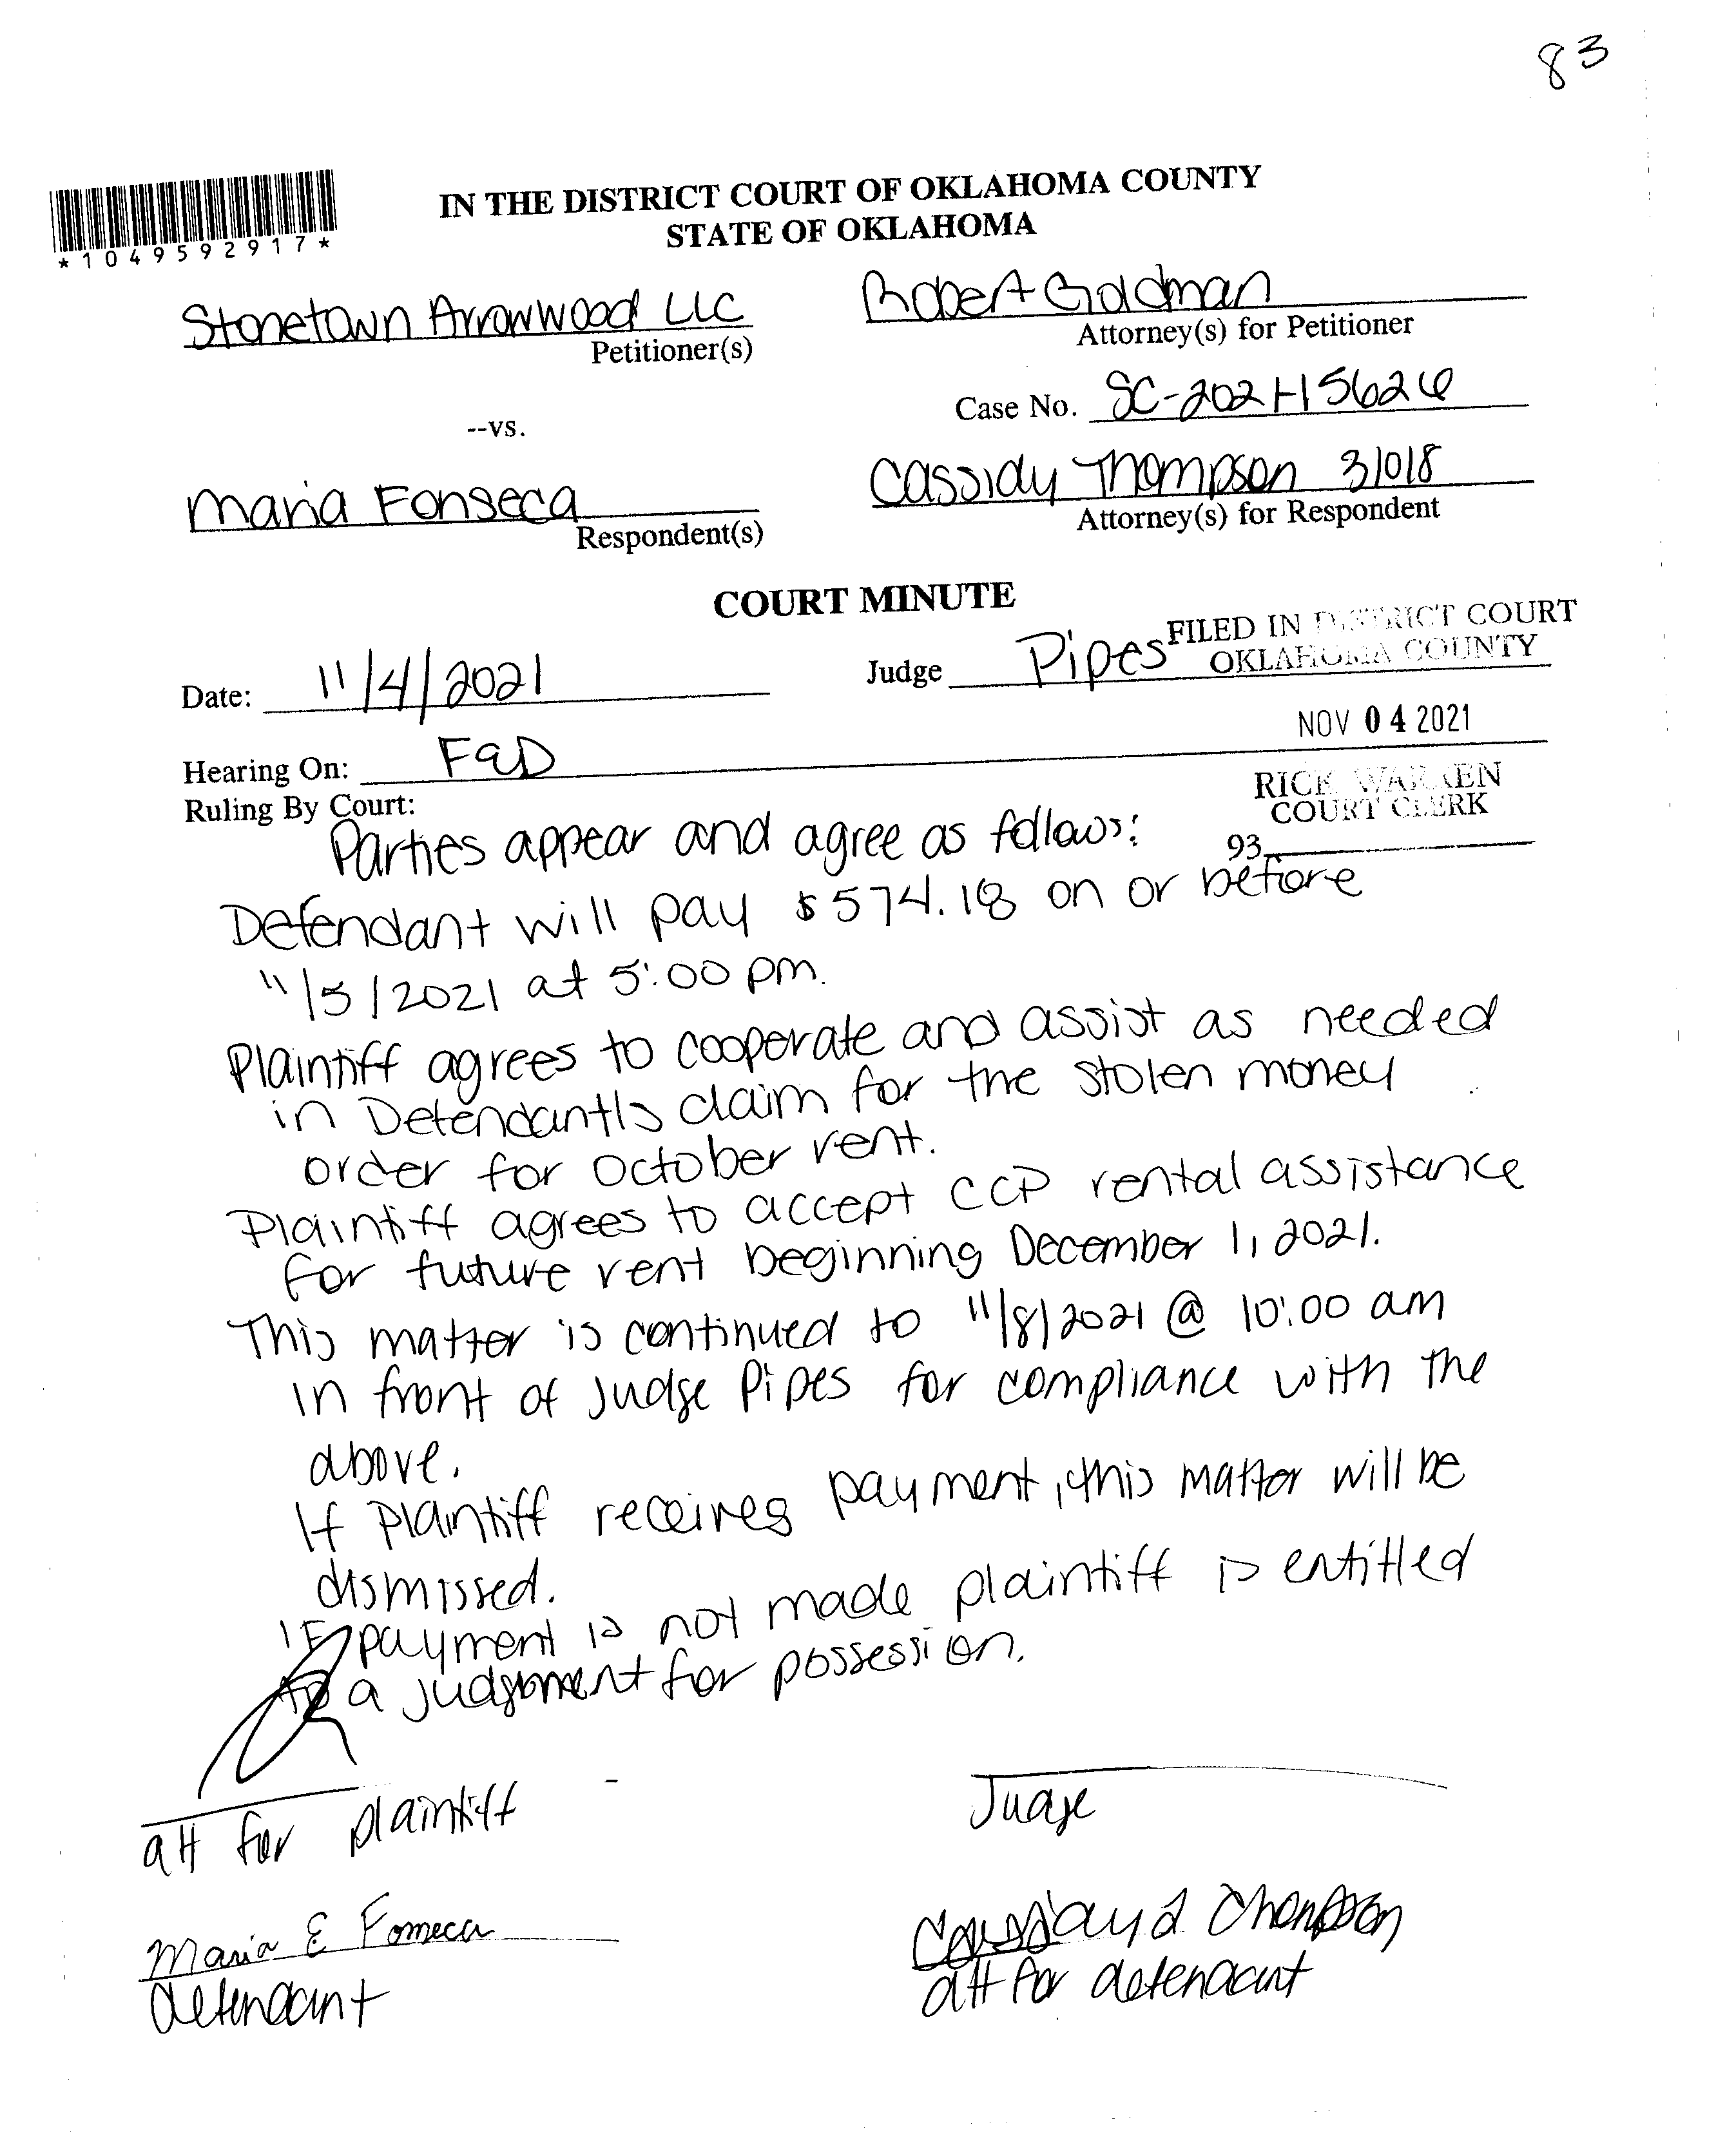 83
*1049592917*
IN THE DISTRICT COURT OF OKLAHOMA COUNTY
STATE OF OKLAHOMA
Stonetown Arrowwood LLC
Petitioner(s)
Robert Goldman
Attorney(s) for Petitioner
--vs.
Case No. SC-2021-15626
Maria Fonseca
Respondent(s)
Cassidy Thompson 31018
Attorney(s) for Respondent
COURT MINUTE
FILED IN DISTRICT COURT
OKLAHOMA COUNTY
Date: 11/4/2021
Judge Pipes
NOV 04 2021
Hearing On: F&D
RICK WARREN
COURT CLERK
93
Ruling By Court:
Parties appear and agree as follows:
Defendant will pay $574.18 on or before
11/5/2021 at 5:00 pm.
Plaintiff agrees to cooperate and assist as needed
in Defendant's claim for the stolen money
order for October rent.
Plaintiff agrees to accept CCP rental assistance
for future rent beginning December 1, 2021.
This matter is continued to 11/8/2021 @ 10:00 am
in front of Judge Pipes for compliance with the
above.
If Plaintiff receives payment, this matter will be
dismissed.
If payment is not made plaintiff is entitled
to a judgment for possession.
att for plaintiff
Judge
Maria E Fonseca
defendant
Cassidy Thompson
att for defendant